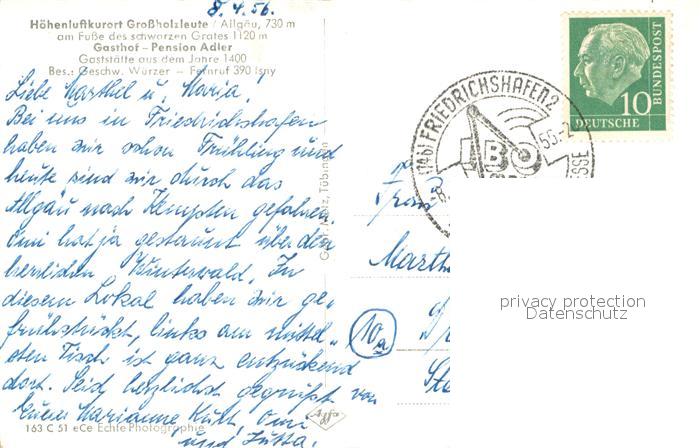 8.4.56.
Höhenluftkurort Großholzleute / Allgäu, 730 m
am Fuße des schwarzen Grates 1120 m
Gasthof – Pension Adler
Gaststätte aus dem Jahre 1400
Bes.: Geschw. Würzer – Fernruf 390 Isny
Liebe Marthel u. Maria!
Bei uns in Friedrichshafen
haben wir schon Frühling und
heute sind wir durch das
Allgäu nach Kempten gefahren.
Omi hat ja gestaunt über den
herrlichen Winterwald. In
diesem Lokal haben wir ge-
frühstückt, links am mittel-
sten Tisch ist ganz entzückend
dort. Seid herzlichst gegrüßt von
Eurer Marianne Kult, Omi
und Jutta.
163 C 51 eCe Echte Photographie
Agfa
Tübingen
(14b) FRIEDRICHSHAFEN 2
IBO
10
DEUTSCHE
BUNDESPOST
Frau
Marth
10a
privacy protection
Datenschutz